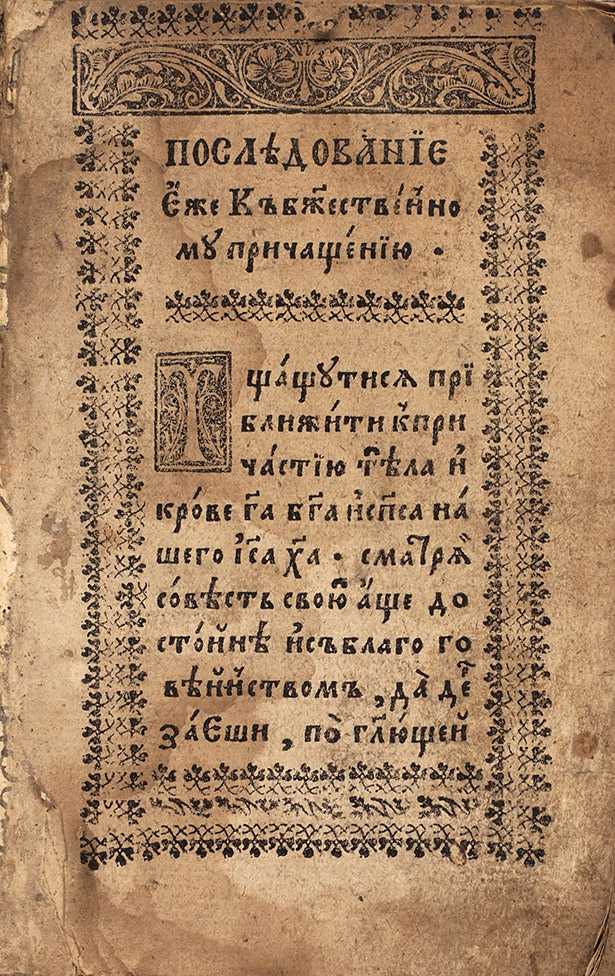 ПОСЛѢДОВАНЇЕ
Е҆́же Къбж҃ественно
му причаще́нїю .
Тща́щꙋтисѧ прї
ближи́ти кпри
ча́стїю тѣ́ла и҆
кро́ве гⷭ҇а бг҃а и҆сп҃са на́
шего і҆с҃а хⷭ҇а . сматрѧ́ѧ
со́вѣсть свою̀ а҆́ще до
сто́йнѣ и҆съблаго го
вѣ́инствомъ , да̀ де
за́еши , по̀ гл҃ющей